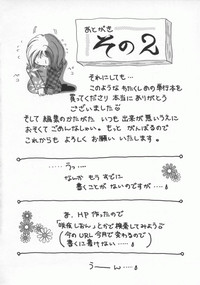 あとがき
その2
それにしても…
このような わたくしめの単行本を
買ってくださり 本当にありがとう
ございました
そして 編集のかたがた いつも 出来が悪いうえに
おそくて ごめんなしゃい。もっと がんばるので
これからも よろしく お願い いたします。
……うっ……
なんか もう すでに
書くことが ないのですが……
あ、HP 作ったので
とかで 検索してみよう
（今の URL 今月で 変わるので
書くに書けない……
うーん……